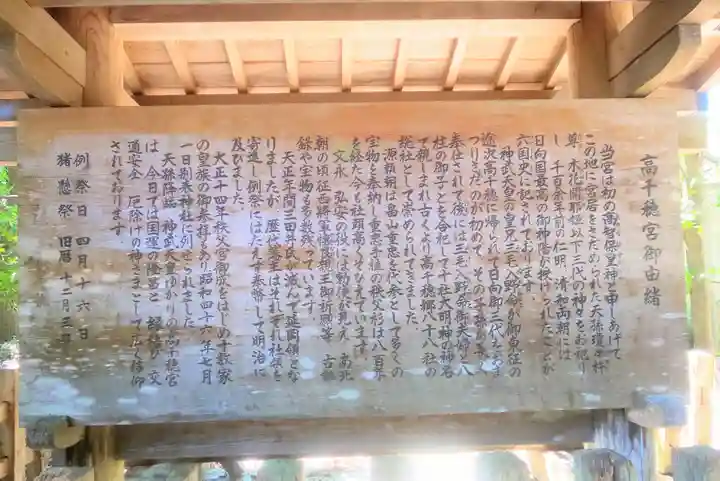 高千穂宮御由緒
当宮は初め高智保皇神と申しあげて
この地に宮居をさだめられた天孫瓊々杵
尊 木花開耶姫以下三代の神々をお祀り
し 千百余年前の仁明、清和両朝には
日向国最高の御神階が授けられたことが
六国史に記されております
神武天皇の皇兄三毛入野命が御東征の
途次高千穂に帰られて日向御三代をおま
つりさたのが初めで その子孫が永く
奉仕されて後には三毛入野命御夫婦と八
柱の御子とを合祀し十社大明神の神名
で親しまれ古くより高千穂郷八十八社の
総社として崇められてきました
源頼朝は畠山重忠を代参として多くの
宝物を奉納し重忠手植の秩父杉は八百年
を経た今も社頭高くそびえています
文永 弘安の役には勅使が見え 南北
朝の頃征西将軍懐良親王の御祈願等 古
録や宝物も多数残っています
天正年間三田井氏が滅んで延岡領とな
りましたが 歴代藩主はそれぞれ社殿を
寄進し例祭にはたえず奉幣して明治に
及びました
大正十四年秩父宮御成をはじめ十数家
の皇族の御参拝もあり昭和四十六年七月
一日別表神社に列せられました
天孫降臨 神武天皇ゆかりの高千穂宮
は 今日では国運の隆昌と 縁結び 交
通安全 厄除けの神さまとして広く信仰
されております
例祭日 四月十六日
猪懸祭 旧暦 十二月三日